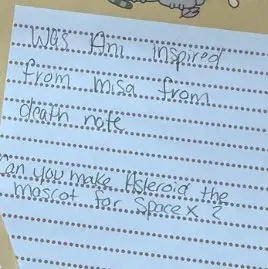 Was Ani inspired
from misa from
death note
Can you make Asteroid the
mascot for Space X ?